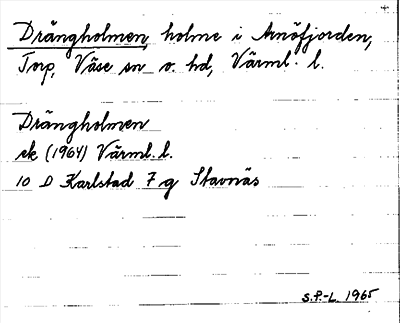 Drängholmen, holme i Arnöfjorden,
Torp, Väse sn o. hd, Värml. l.
Drängholmen
ek (1964) Värml. l.
10 D Karlstad 7 g Stavnäs
S.P.-L. 1965